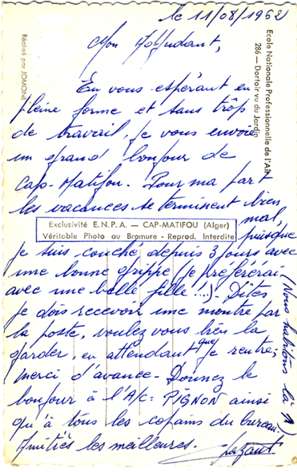 le 11/08/1962
Mon Adjudant,
En vous espérant en
pleine forme et sans trop
de travail, je vous envoie
un grand bonjour de
Cap-Matifou. Pour ma part
les vacances se terminent bien
mal, puisque
je suis couché depuis 3 jours avec
une bonne grippe (je préférerai
avec une belle fille!!). Dites,
je dois recevoir une montre par
la poste, voulez vous bien la
garder, en attendant que je rentre;
merci d'avance. Donnez le
bonjour à l'A/c: PIGNON ainsi
qu'à tous les copains du bureau.
Amitiés les meilleures.
(Nous habitons là ↑)
Exclusivité E.N.P.A. — CAP-MATIFOU (Alger)
Véritable Photo au Bromure - Reprod. Interdite
Ecole Nationale Professionnelle de l'AIR
286 — Dortoir vu du Jardin
Réalisé par JOMONE